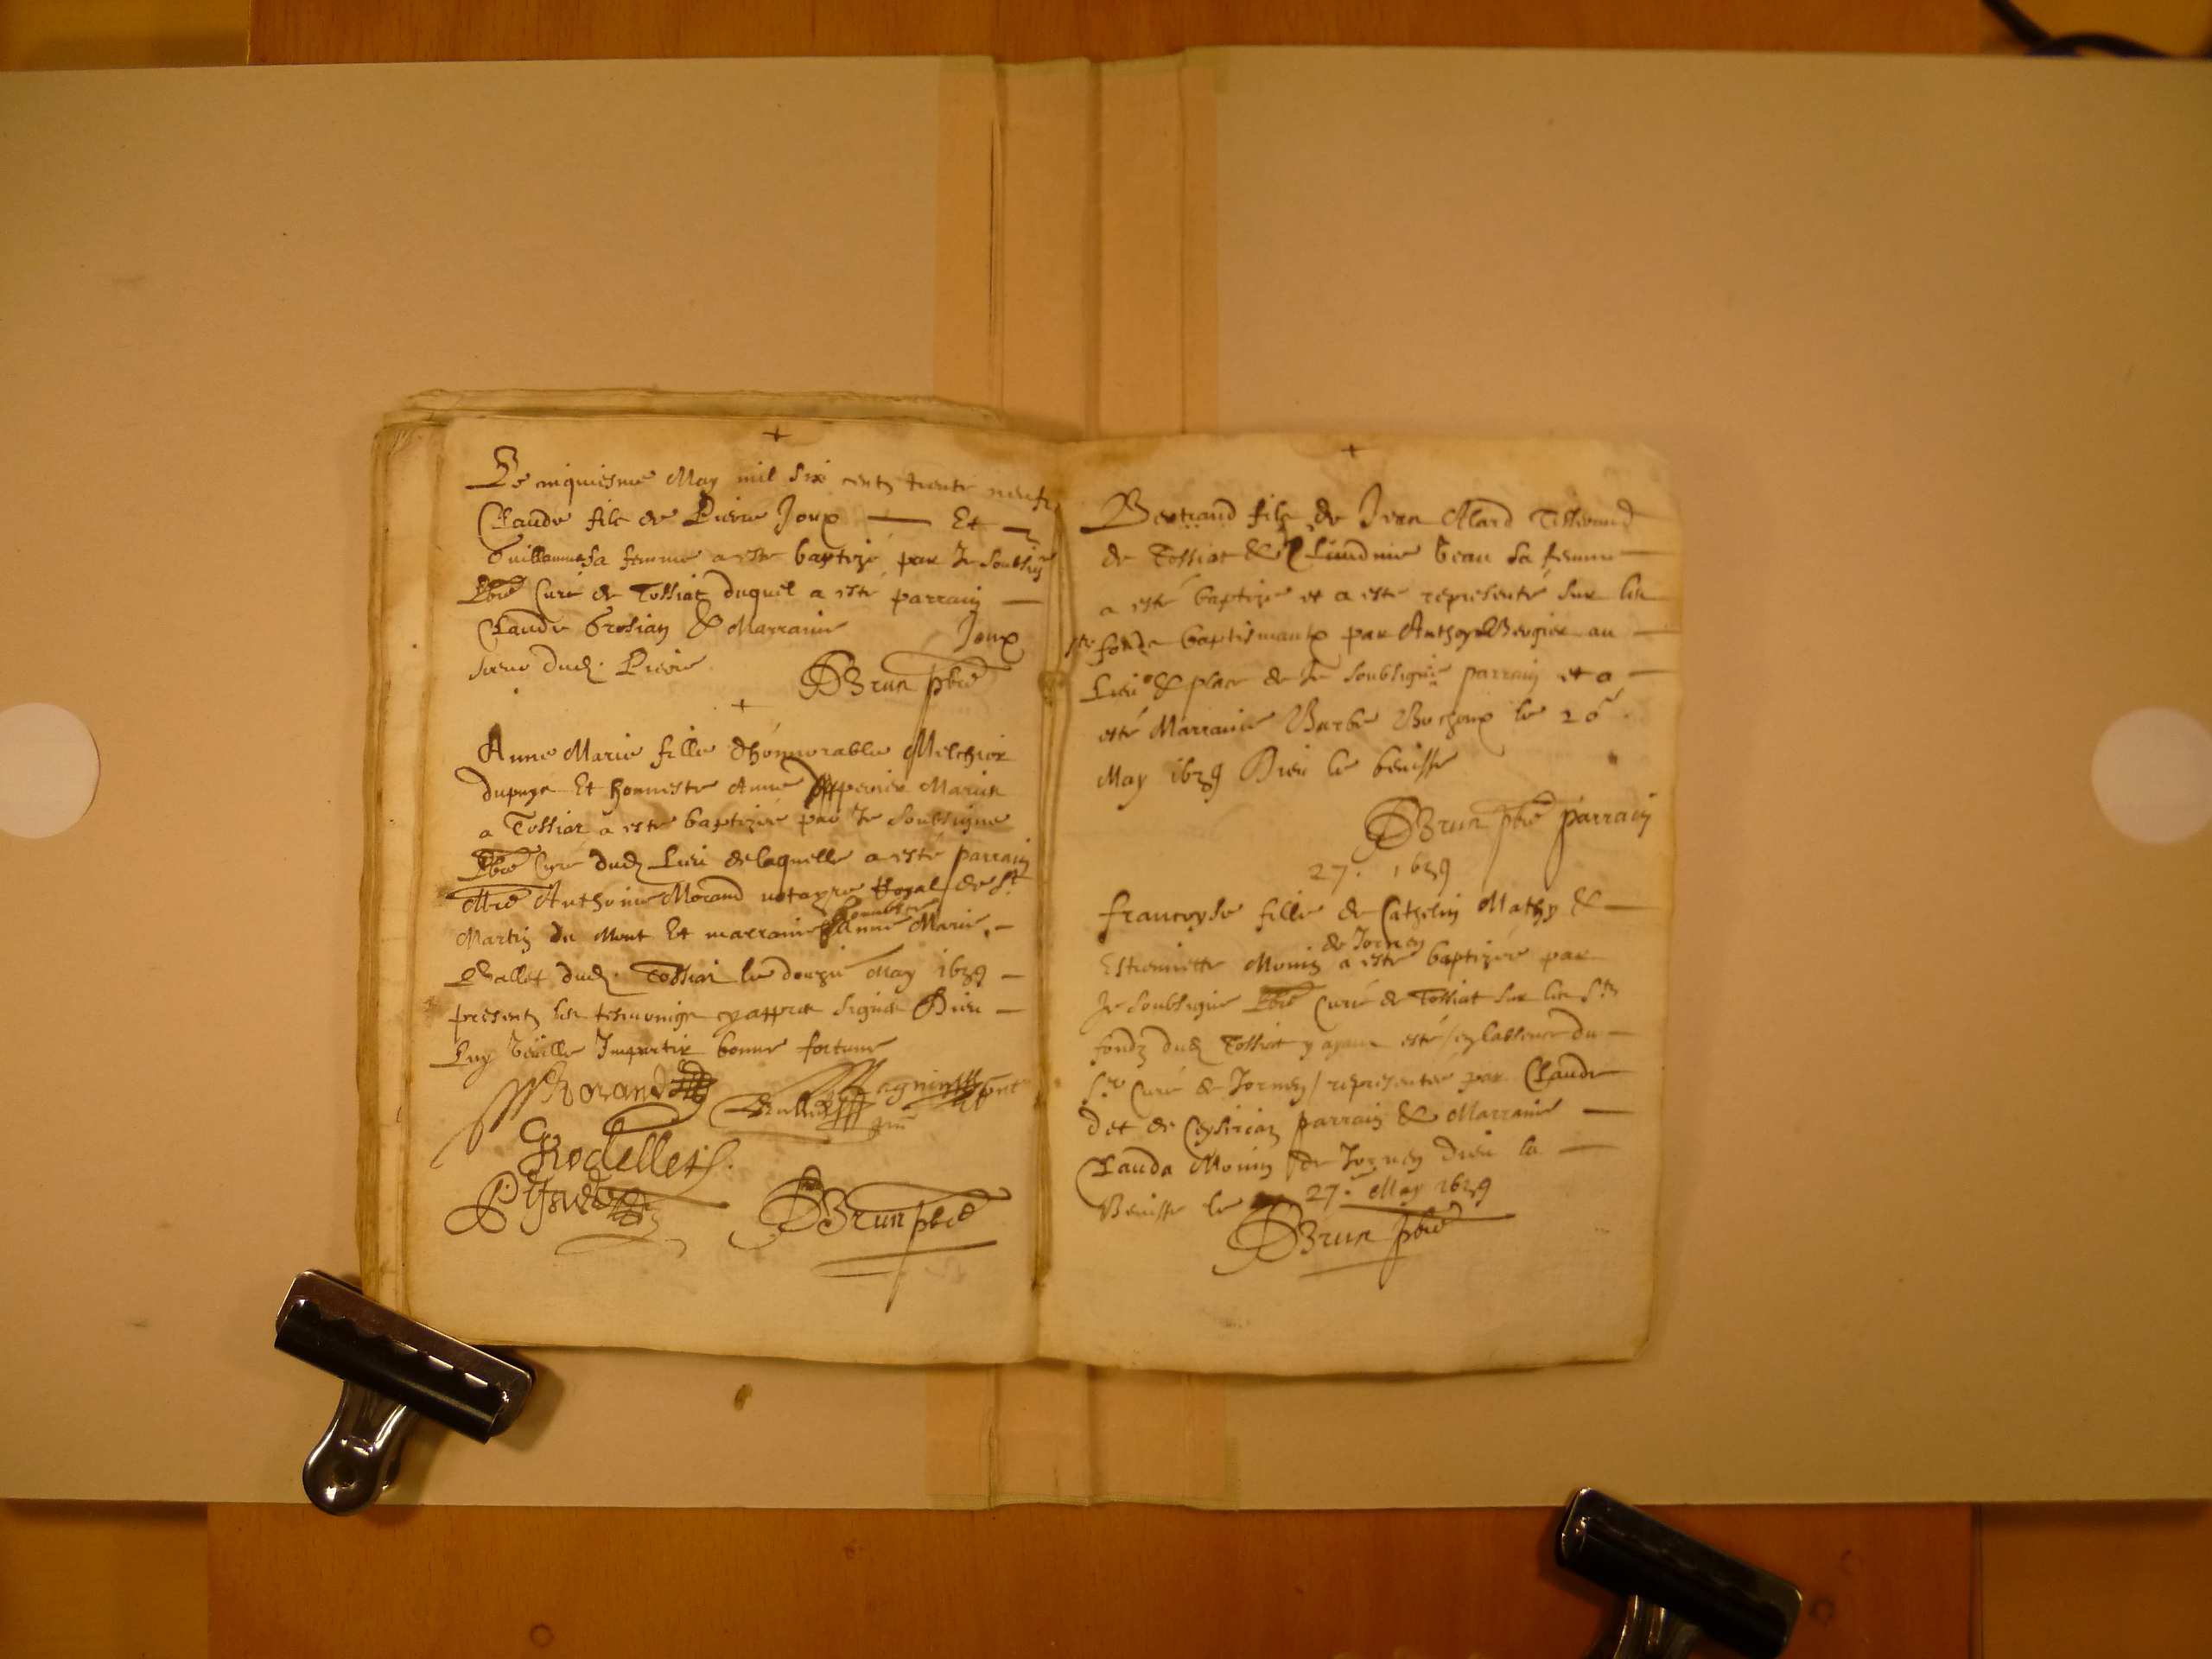 +
Le cinquiesme May mil six centz trente neufz
Claude filz de Pierre Joux — Et —
Guillauma sa femme a este baptizé par Je soubsigné
Pbre Curé de Tossiat duquel a esté parrain —
Claude Grosian & Marraine Joux
soeur dud. Pierre
DBrun pbre
+
Anne Marie fille dhonnorable Melchior
dupuys Et honneste Anne Marin
a Tossiat a este baptizée par Je soubsigne
Pbre Curé dud Lieu delaquelle a esté parrain
Me Anthoine Morand notayre Royal de St
honneste
Martin du Mont Et marraine Anne Marie. —
Vallet dud. Tossiat le douzie May 1639 —
presentz les tesmoings cyappres signés Dieu —
Luy veuille Impartir bonne fortune
Morand
Rodellet
DBrun pbre
+
Bertrand filz de Jean Alard Tisserand
de Tossiat & Claudine beau sa femme —
a esté baptizé et a este representé sur les
stz fondz baptismaulx par Anthoyne Bergier au —
Lieu & place de Je soubsigné parrain et a —
esté Marraine Barbe Bochoux le 26
May 1639 Dieu le benisse
DBrun pbre parrain
27. 1639
francoyse fille de Cathelin Mathy & —
de Jornen
Estiennette Monin a este baptizée par
Je soubsigné Pbre Curé de Tossiat sur les Stz
fondz dud Tossiat y ayant esté / en labsence du —
Sr Curé de Jornen / representée par Claude
det de Ceysiriaz parrain & Marraine —
Clauda Monin de Jornen Dieu la —
Benisse le 27. May 1639
DBrun pbre